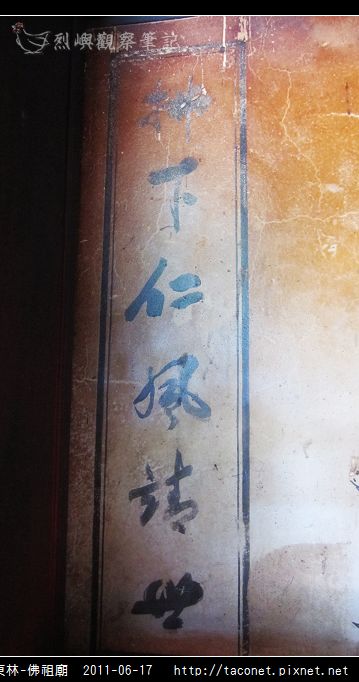 烈嶼觀察筆記
柳下仁風靖典
東林-佛祖廟 2011-06-17 http://taconet.pixnet.net